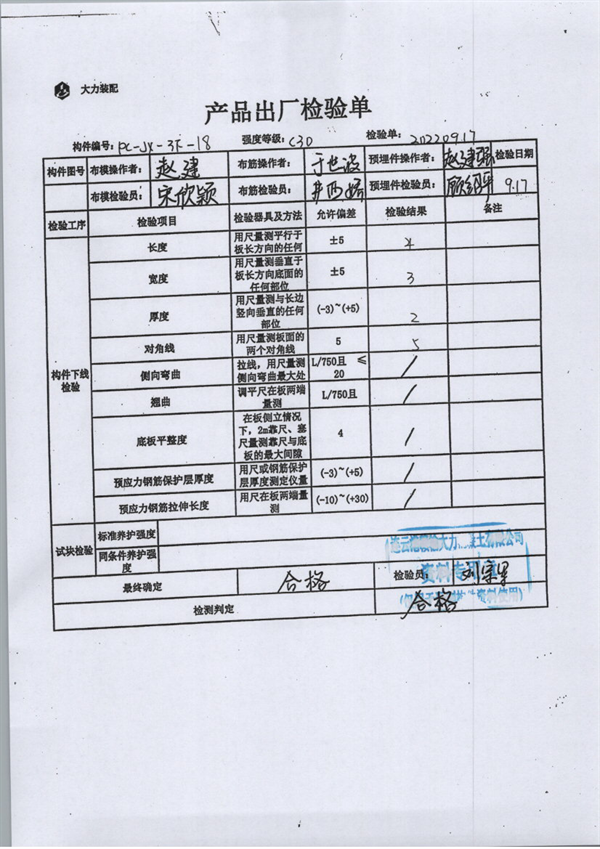 大力装配
产品出厂检验单
构件编号: PC-JX-3F-18 强度等级: C30 检验单: 20220917
构件图号 布模操作者: 赵建 布筋操作者: 于世波 预埋件操作者: 赵建强 检验日期
布模检验员: 宋欣颖 布筋检验员: 预埋件检验员: 9.17
检验工序 检验项目 检验器具及方法 允许偏差 检验结果 备注
构件下线检验
长度 用尺量测平行于板长方向的任何 ±5 4
宽度 用尺量测垂直于板长方向底面的任何部位 ±5 3
厚度 用尺量测与长边竖向垂直的任何部位 (-3)~(+5) 2
对角线 用尺量测板面的两个对角线 5 5
侧向弯曲 拉线，用尺量测侧向弯曲最大处 L/750且 ≤ 20 /
翘曲 调平尺在板两端量测 L/750且 /
底板平整度 在板侧立情况下，2m靠尺、塞尺量测靠尺与底板的最大间隙 4 /
预应力钢筋保护层厚度 用尺或钢筋保护层厚度测定仪量 (-3)~(+5) /
预应力钢筋拉伸长度 用尺在板两端量测 (-10)~(+30) /
试块检验 标准养护强度
同条件养护强度
最终确定 合格 检验员:
检测判定 合格